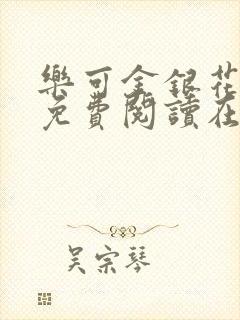 樂可金銀花
免費閱讀在
吴宗琴